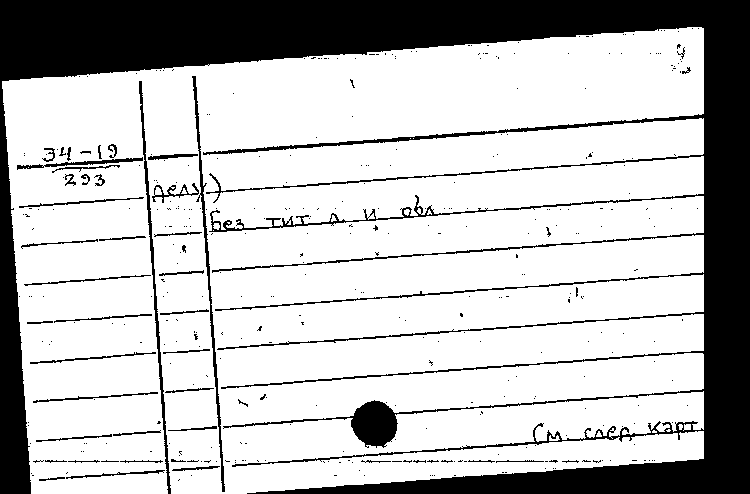 4
34-19
293
делу)
Без тит л и обл
См. след. карт.